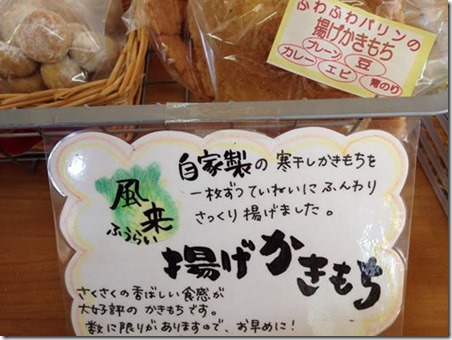 ふわふわパリンの
揚げかきもち
プレーン 豆
カレー エビ 青のり
風来
ふうらい
自家製の寒干しかきもちを
一枚ずつていねいにふんわり
さっくり揚げました。
揚げかきもち
さくさくの香ばしい食感が
大好評の かきもちです。
数に限りがありますので、お早めに!